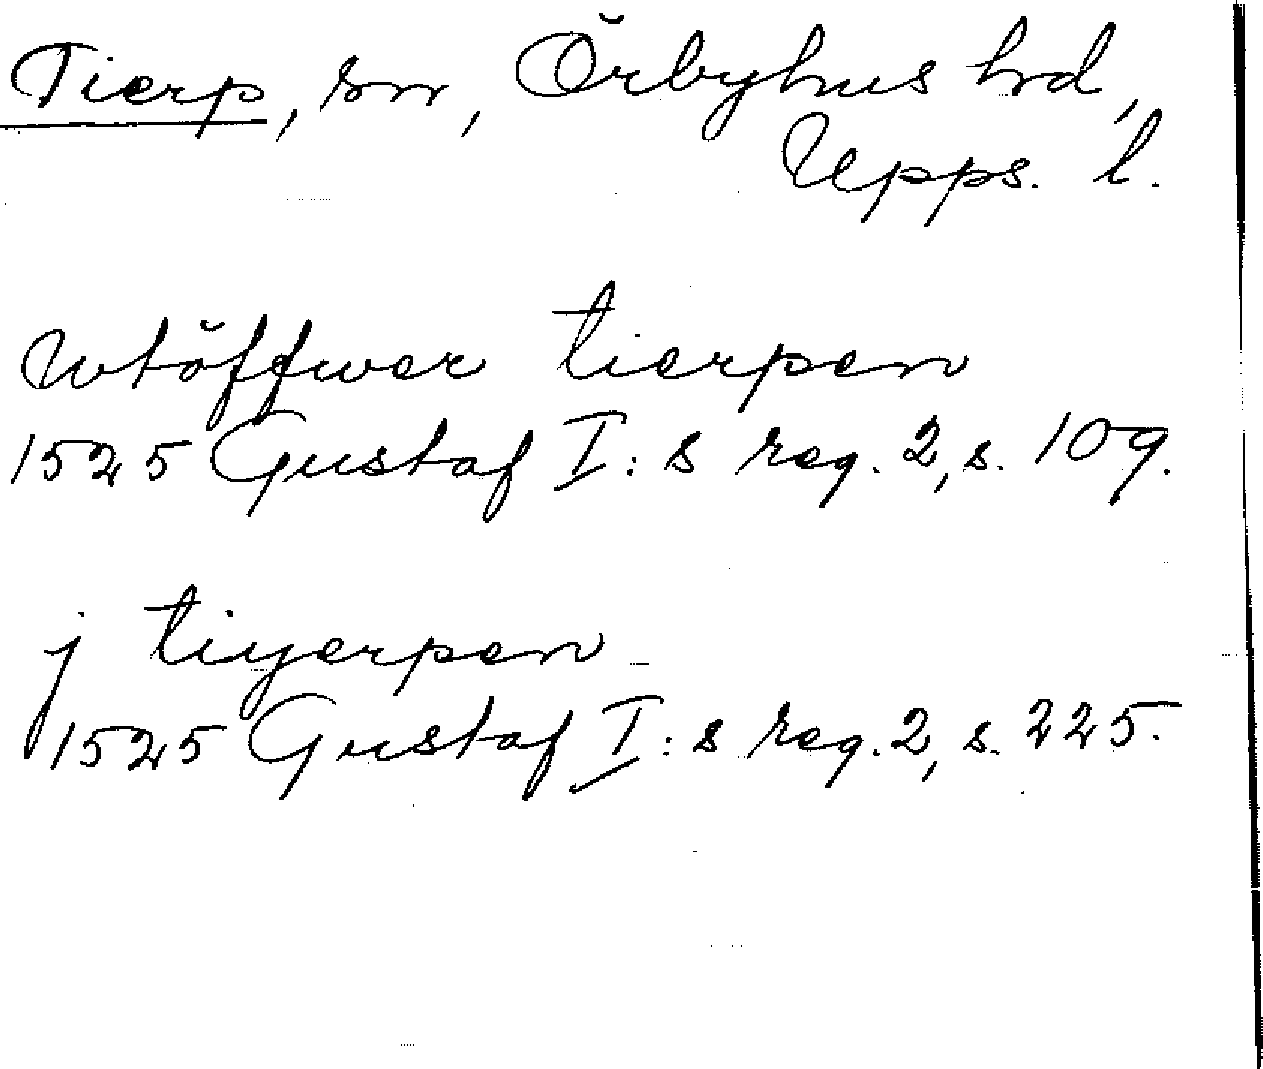 Tierp, sn, Örbyhus hd,
Upps. l.
wtöffwer tierpen
1525 Gustaf I:s reg. 2, s. 109.
j tiyerpen
1525 Gustaf I:s reg. 2, s. 225.